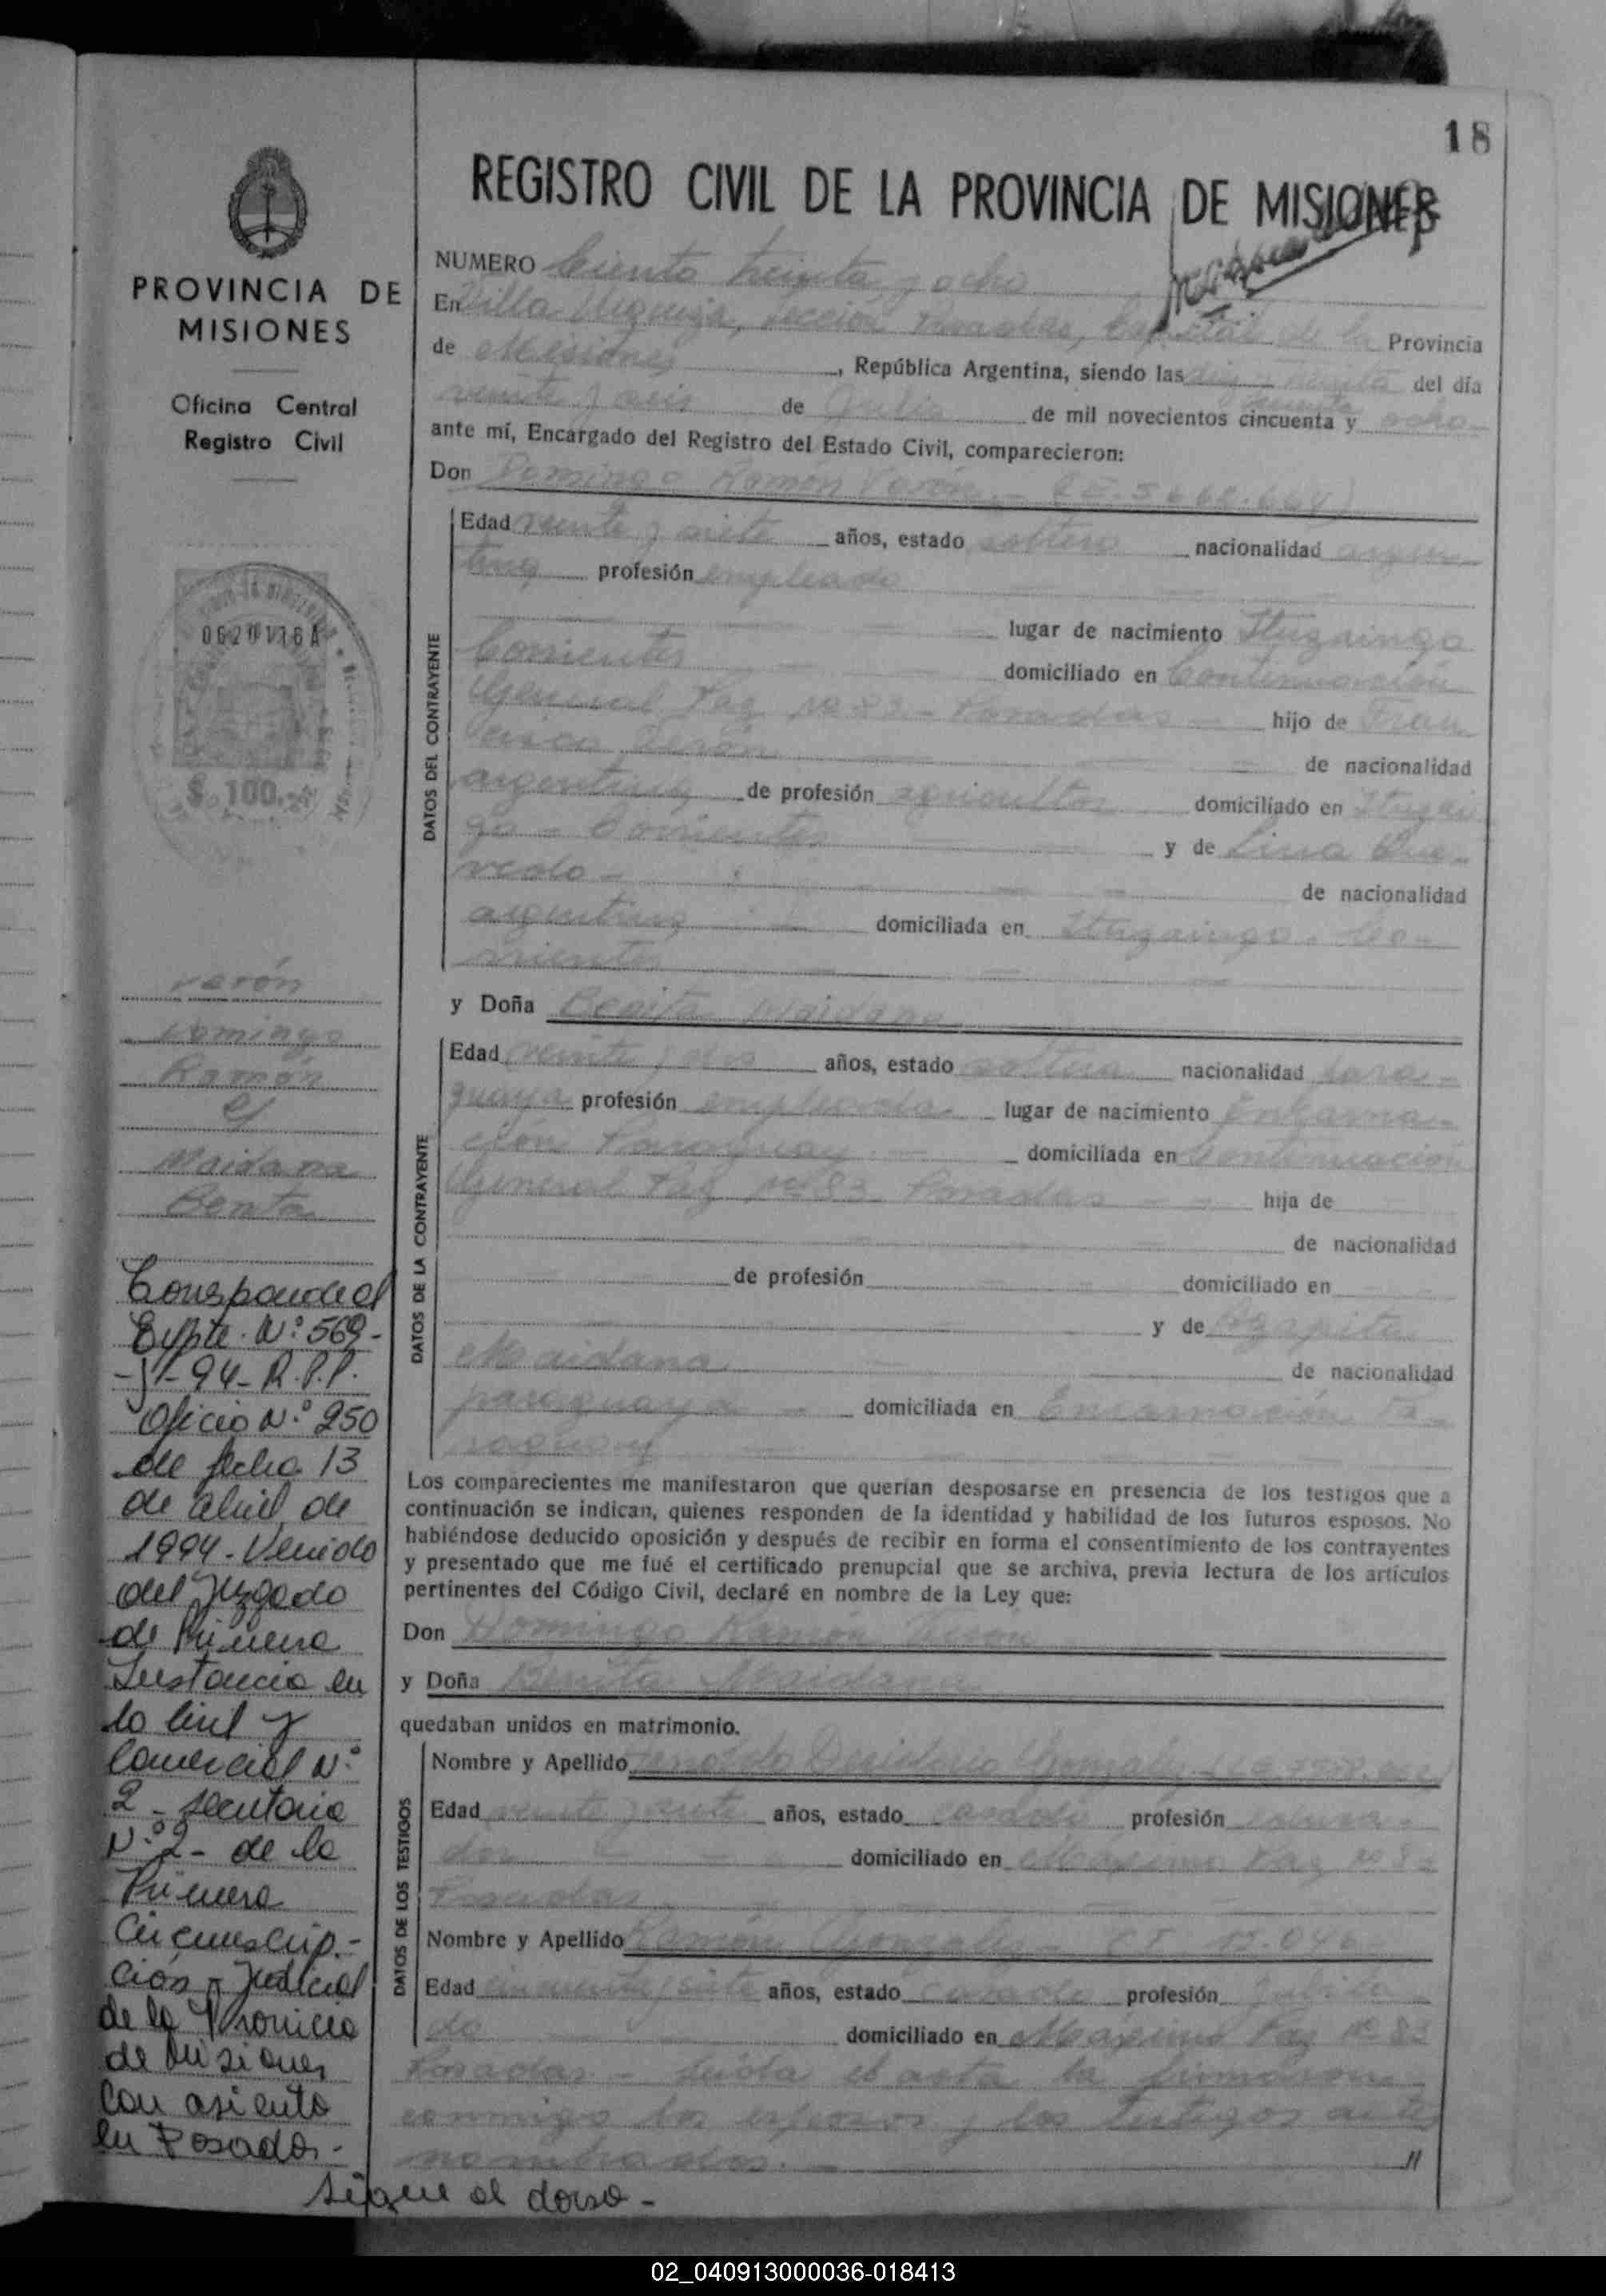 18
REGISTRO CIVIL DE LA PROVINCIA DE MISIONES
PROVINCIA DE
MISIONES
Oficina Central
Registro Civil
0620176A
$ 100.
Verón
Domingo
Ramón
c/
Maidana
Benita
Corresponde al
Expte. Nº 569-
94- R.P.P.
Oficio N.º 250
de fecha 13
de abril de
1994. Venido
del Juzgado
de Primera
Instancia en
lo Civil y
Comercial Nº
2 - Secretaria
Nº 2 - de la
Primera
Circunscrip.-
ción Judicial
de la Provincia
de Misiones
con asiento
en Posadas.-
Sigue al dorso -
NUMERO Ciento treinta y ocho
En Villa Urquiza, sección Posadas, Capital de la Provincia
de Misiones, República Argentina, siendo las diez y treinta del día
veinte y seis de Julio de mil novecientos cincuenta y ocho
ante mí, Encargado del Registro del Estado Civil, comparecieron:
Don Domingo Ramón Verón
DATOS DEL CONTRAYENTE
Edad veinte y siete años, estado soltero nacionalidad argen-
tina profesión empleado
lugar de nacimiento Ituzaingo
Corrientes domiciliado en Continuación
General Paz Nº 83 - Posadas - hijo de Fran
cisco Verón de nacionalidad
argentina de profesión agricultor domiciliado en Ituzain
go - Corrientes y de Lina Que-
vedo - de nacionalidad
argentina domiciliada en Ituzaingo - Co-
rrientes
y Doña Benita Maidana
DATOS DE LA CONTRAYENTE
Edad veinte y dos años, estado soltera nacionalidad para-
guaya profesión empleada lugar de nacimiento Encarna-
ción Paraguay domiciliada en Continuación
General Paz Nº 83 Posadas hija de
de nacionalidad
de profesión domiciliado en
y de Agapita
Maidana de nacionalidad
paraguaya domiciliada en Encarnación Pa-
raguay
Los comparecientes me manifestaron que querían desposarse en presencia de los testigos que a
continuación se indican, quienes responden de la identidad y habilidad de los futuros esposos. No
habiéndose deducido oposición y después de recibir en forma el consentimiento de los contrayentes
y presentado que me fué el certificado prenupcial que se archiva, previa lectura de los artículos
pertinentes del Código Civil, declaré en nombre de la Ley que:
Don Domingo Ramón Verón
y Doña Benita Maidana
quedaban unidos en matrimonio.
DATOS DE LOS TESTIGOS
Nombre y Apellido Desiderio González
Edad veinte y siete años, estado casado profesión
dor domiciliado en Máximo Paz Nº 83
Posadas
Nombre y Apellido Ramón González
Edad cincuenta y siete años, estado casado profesión Jubila
do domiciliado en Máximo Paz Nº 83
Posadas. - Leída el acta la firmaron
conmigo los esposos y los testigos ante
nombrados. - //
02_040913000036-018413